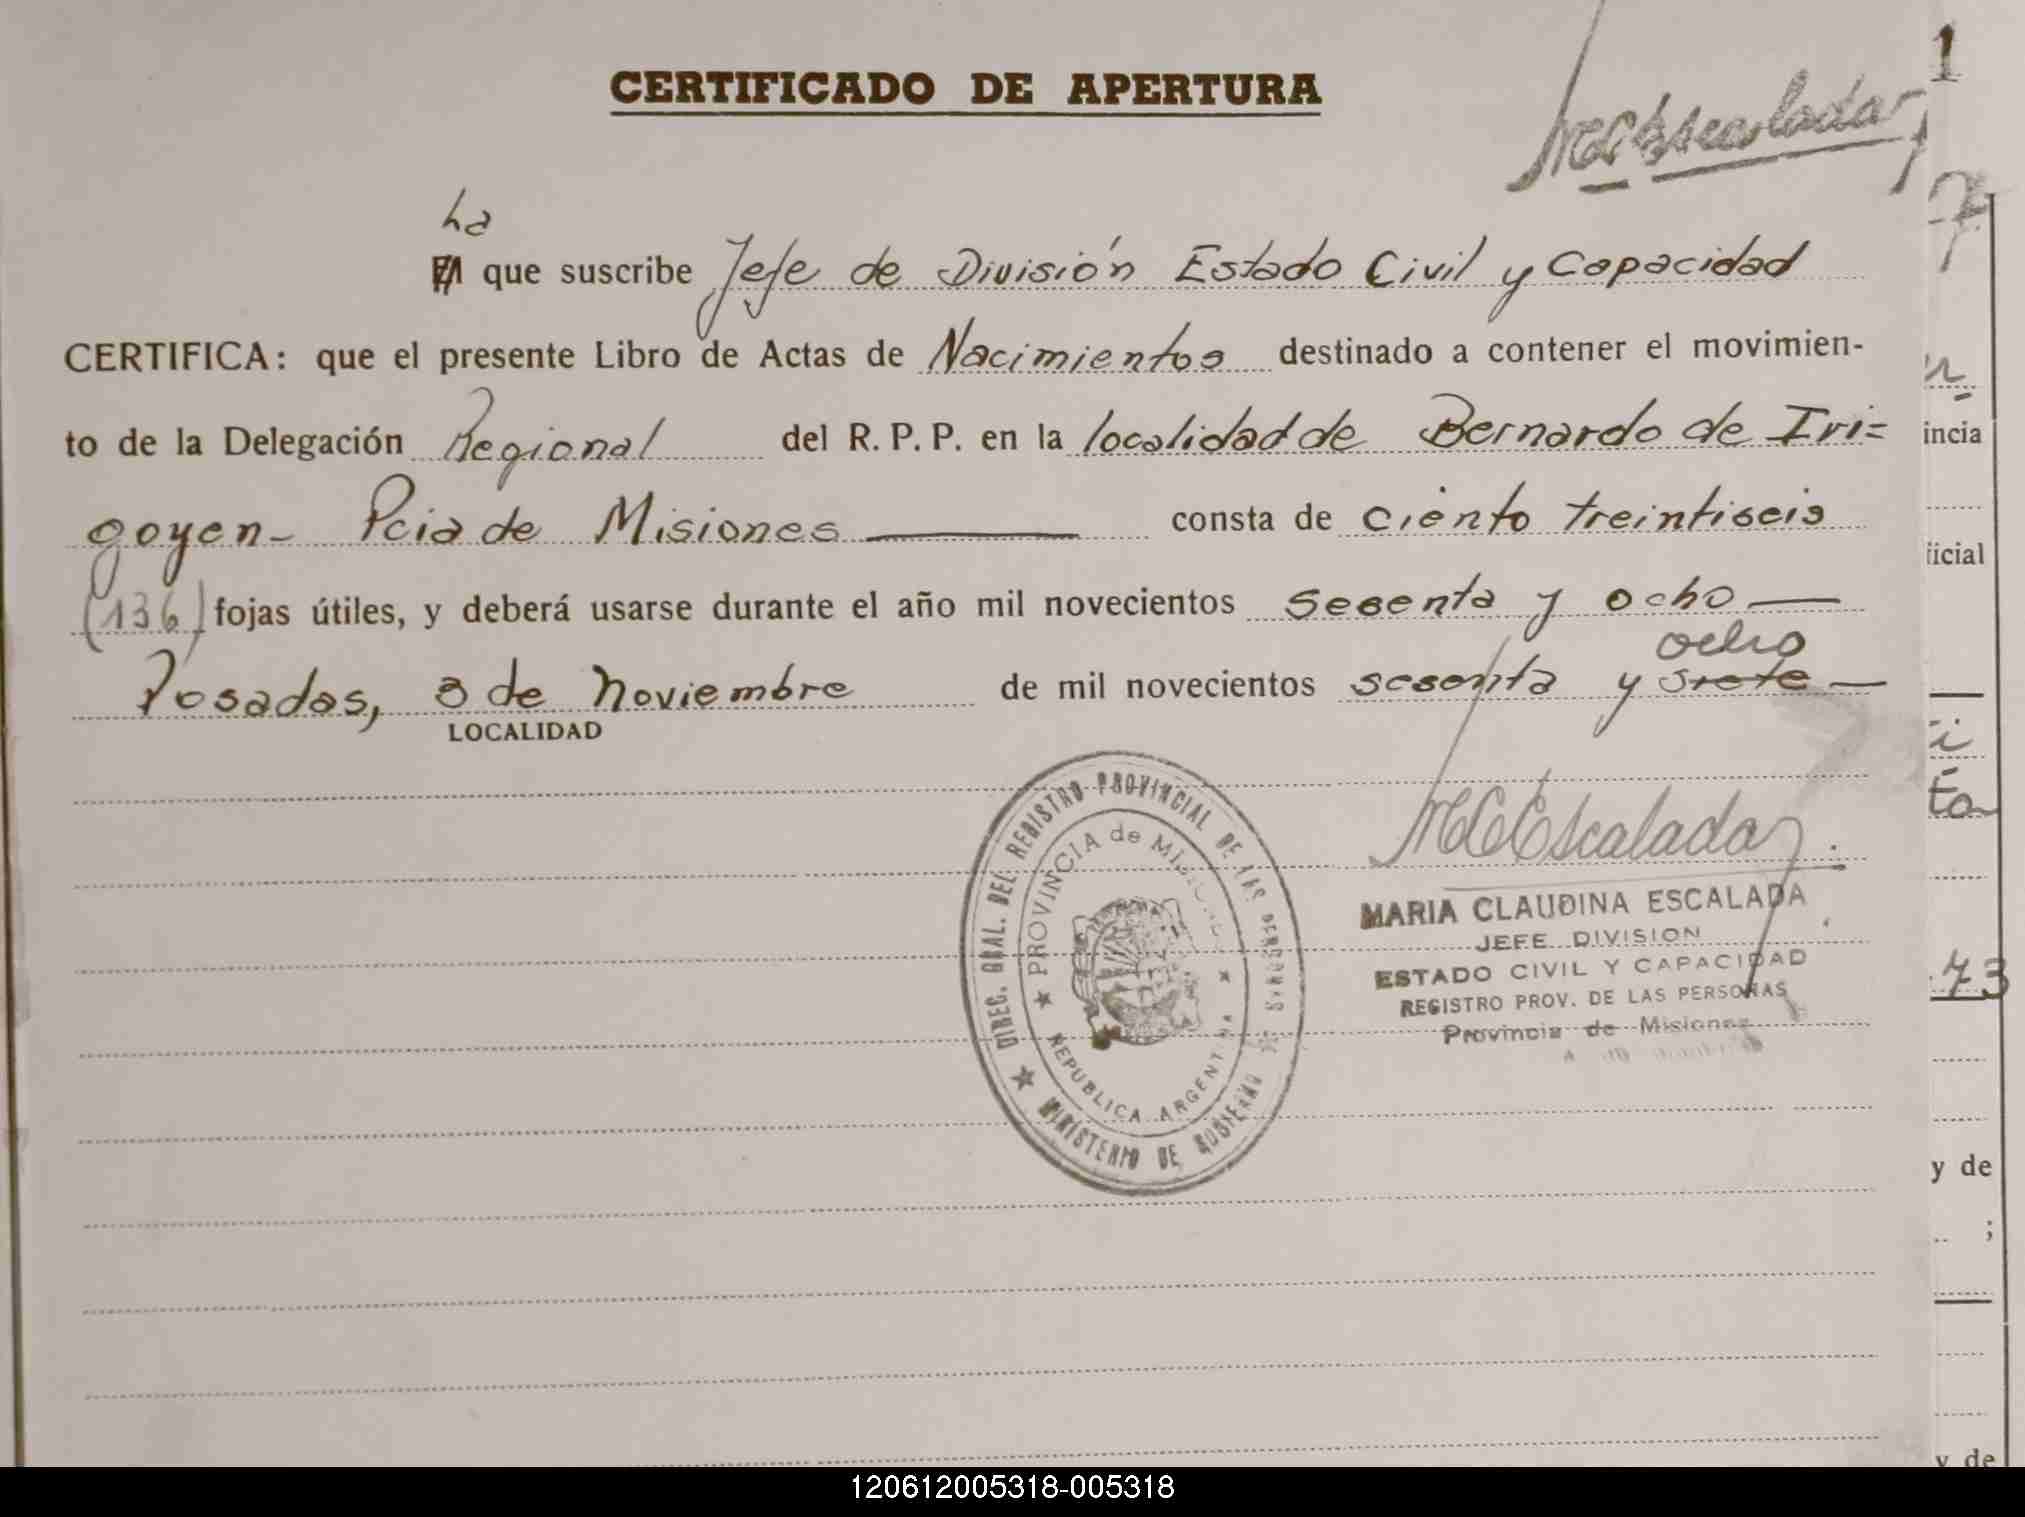 1
CERTIFICADO DE APERTURA
MCEscalada
La
El que suscribe Jefe de División Estado Civil y Capacidad
CERTIFICA: que el presente Libro de Actas de Nacimientos destinado a contener el movimien-
to de la Delegación Regional del R. P. P. en la localidad de Bernardo de Iri=
goyen- Pcia de Misiones consta de ciento treintiseis
(136) fojas útiles, y deberá usarse durante el año mil novecientos sesenta y ocho
ocho
Posadas, 8 de Noviembre de mil novecientos sesenta y siete
LOCALIDAD
MCEscalada
MARIA CLAUDINA ESCALADA
JEFE DIVISION
ESTADO CIVIL Y CAPACIDAD
REGISTRO PROV. DE LAS PERSONAS
Provincia de Misiones
DIREC. GRAL. DEL REGISTRO PROVINCIAL DE LAS PERSONAS
MINISTERIO DE GOBIERNO
PROVINCIA de MISIONES
REPUBLICA ARGENTINA
7
incia
icial
73
y de
;
y de
120612005318-005318